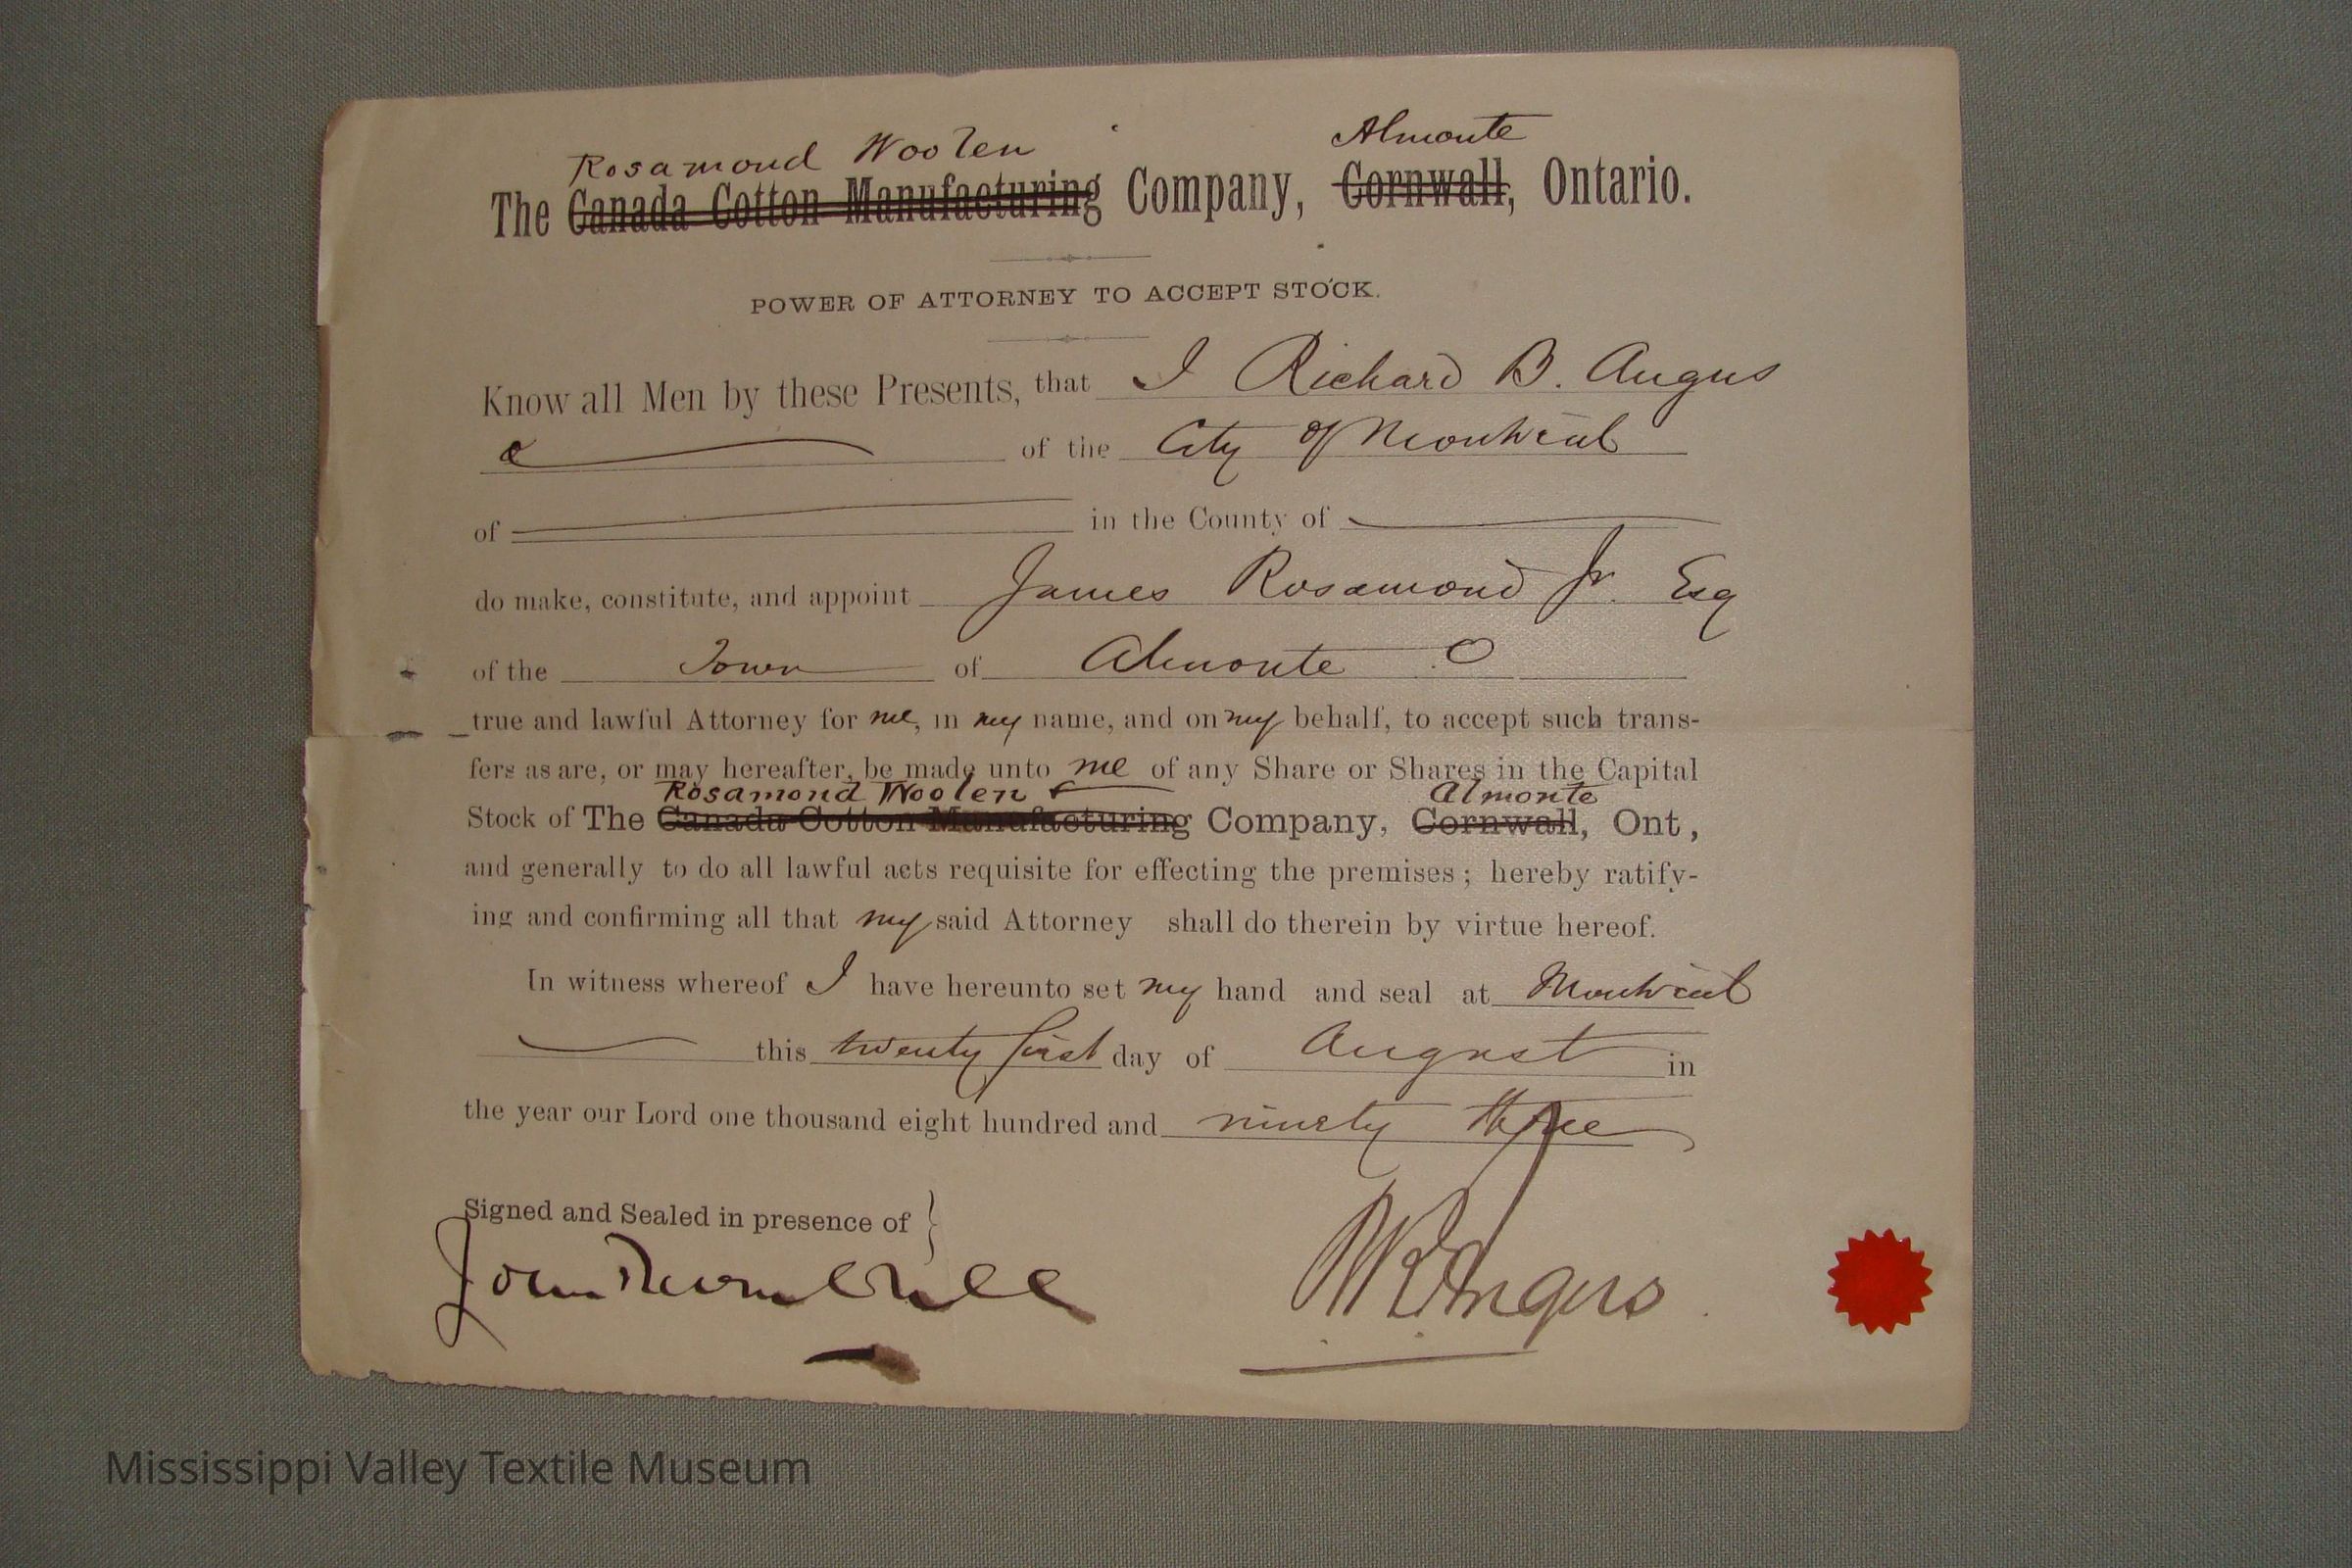 Rosamond Woolen Almonte
The Canada Cotton Manufacturing Company, Cornwall, Ontario.
POWER OF ATTORNEY TO ACCEPT STOCK.
Know all Men by these Presents, that I Richard B. Angus
of the City of Montreal
of in the County of
do make, constitute, and appoint James Rosamond Jr. Esq
of the Town of Almonte O
true and lawful Attorney for me, in my name, and on my behalf, to accept such trans-
fers as are, or may hereafter, be made unto me of any Share or Shares in the Capital
Rosamond Woolen Almonte
Stock of The Canada Cotton Manufacturing Company, Cornwall, Ont,
and generally to do all lawful acts requisite for effecting the premises; hereby ratify-
ing and confirming all that my said Attorney shall do therein by virtue hereof.
In witness whereof I have hereunto set my hand and seal at Montreal
this twenty first day of August in
the year our Lord one thousand eight hundred and ninety three
Signed and Sealed in presence of }
John Turnbull RB Angus
Mississippi Valley Textile Museum